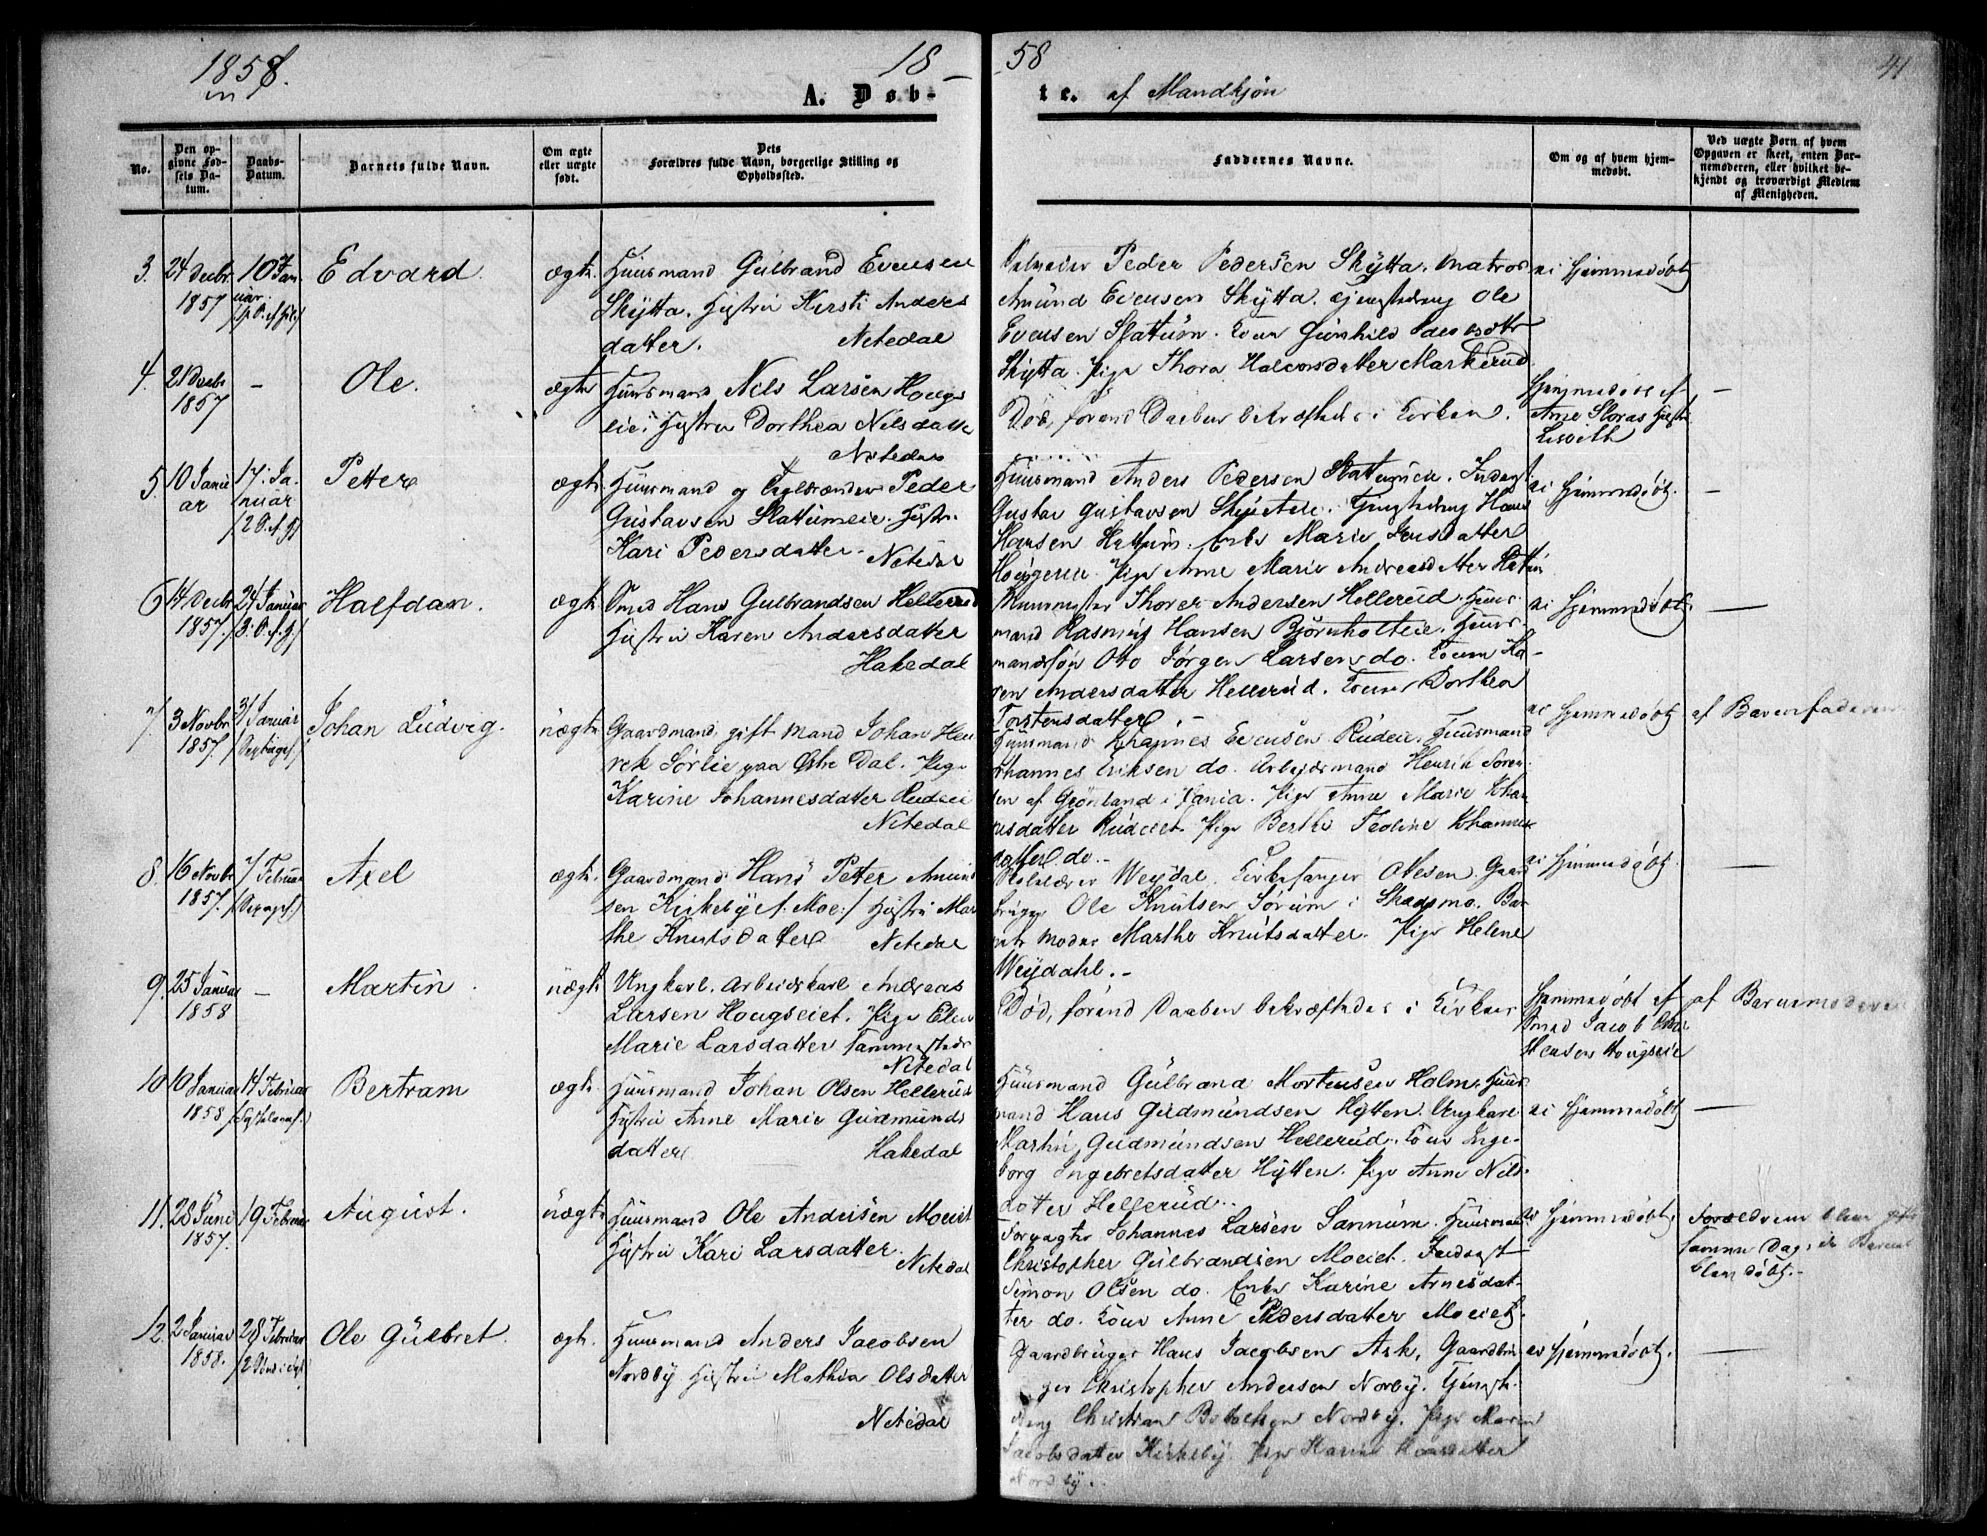 1858.
18 - 58
41
A. Døb-
te. af Mandkjøn
No.
Den op-
givne Fød-
sels Da-
tum.
Daabs-
Datum.
Barnets fulde Navn.
Om ægte
eller uægte
født.
Dets
Forældres fulde Navn, borgerlige Stilling og
Opholdssted.
Faddernes Navne.
Om og af hvem hjem-
medøbt.
Ved uægte Børn af hvem
Opgaven er skeet, enten Bar-
nemoderen, eller hvilket be-
kjendt og troværdigt Medlem
af Menigheden.
3. 24 Decbr
1857
10 Jan-
uar.
Edvard.
ægte.
Huusmand Gulbrand Evensen
Skytta. Hustru Kirsti Anders
datter. Nitedal
Peder Pedersen Skytta. Matros
Amund Evensen Skytta. Ole
Evensen Slattum. Kone Gunhild
Skytta. Pige Thora Halvorsdatter Markerud
ei Hjemmedøbt
4. 21 Decbr
1857
-
Ole.
ægte
Huusmand Nils Larsen Houg-
eie, Hustru Dorthea Nilsdatte
Nitedal
Død, førend Daaben bekræftedes i Kirken.
Hjemmedøbt af
Arne Hustru
Lisbeth
-
5. 10 Janu
ar
17. Ja-
nuar
Petter
ægte.
Huusmand og Peder
Gustavsen Slatumeie. Hustru
Kari Pedersdatter. Nitedal
Huusmand Anders Pedersen Slattumeie. Inderst
Gustav Gustavsen Hans
Hansen Hattum. Enke Marie Jensdatter
Pige Anne Marie Andreasdatter
ei Hjemmedøbt.
-
6. 14 Decbr
1857.
24 Januar
Halfdan.
ægte
Smed Hans Gulbrandsen Hellerud
Hustru Karen Andersdatter
Hakedal
Thorer Andersen Hellerud. Huus-
mand Rasmus Hansen Bjørnholteie. Huus-
mandssøn Otto Jørgen Larsen do. Kone Ka-
ren Andersdatter Hellerud. Kone Dorthea
Torstensdatter
ei Hjemmedøbt.
-
7. 3 Novbr
1857.
31 Januar
Johan Ludvig.
uægte
Gaardmand, gift Mand Johan Hen
rek Sørlie paa Østre Dal. Pige
Karine Johannesdatter Rudeie
Nitedal
Huusmand Johannes Evensen Rudeie. Huusmand
Johannes Eriksen do. Arbeidsmand Henrik Soren-
sen af Grønland i Xania. Pige Anne Marie Johan-
nesdatter Rudeiet. Pige Berthe Teoline Johannes
datter do.-
ei Hjemmedøbt
af Barnefaderen
8. 16 Novbr
1857.
7 Februar
Axel
ægte.
Gaardmand Hans Petter Amund
sen Kirkeby /: Moe:/ Hustru Mar
the Knutsdatter Nitedal
Skolelærer Weydal. Kirkesanger Olesen. Gaard
bruger Ole Knutsen Sørum i Skedsmo. Bar-
nets Moder Marthe Knutsdatter. Pige Helene
Weydahl.-
ei Hjemmedøbt.
-
9. 25 Januar
1858
-
Martin.
uægte
Ungkarl. Arbeidskarl Andreas
Larsen Hougseiet. Pige Elen
Marie Larsdatter sammesteds
Nitedal
Død, førend Daaben bekræftedes i Kirken
Hjemmedøbt af
Smed Jacob
Hansen Hougseie
af Barnemoderen
10. 10 Januar
1858
14 Februar
Bertram
ægte.
Huusmand Johan Olsen Hellerud
Hustru Anne Marie Gudmunds
datter Hakedal
Huusmand Gulbrand Mortensen Holm. Huus-
mand Hans Gudmundsen Hytten. Ungkarl
Martin Gudmundsen Hellerud. Kone Inge-
borg Ingebretsdatter Hytten. Pige Anne Nils-
datter Hellerud.
ei Hjemmedøbt
-
11. 28 Juni
1857.
19 Februar
August.
uægte
Huusmand Ole Andersen Moeiet
Hustru Kari Larsdatter.
Nitedal
Forpagter Johannes Larsen Sannum. Huusmand
Christopher Gulbrandsen Moeiet. Inderst
Simon Olsen do. Enke Karine Arnesdat-
ter do. Kone Anne Pedersdatter Moeiet.
ei Hjemmedøbt.
Forældrene blev gift
samme Dag, da Barnet
blev døbt.-
12. 2 Januar
1858.
28 Februar
Ole Gulbret.
ægte.
Huusmand Anders Jacobsen
Nordby Hustru Mathia Olsdatter
Nitedal
Gaardbruger Hans Jacobsen Ask, Gaardbru-
ger Christopher Andersen Norby. Tjeneste-
dreng Christian Nordby. Pige Maren
Jacobsdatter Kirkeby. Pige
Nordby.
ei Hjemmedøbt.
-